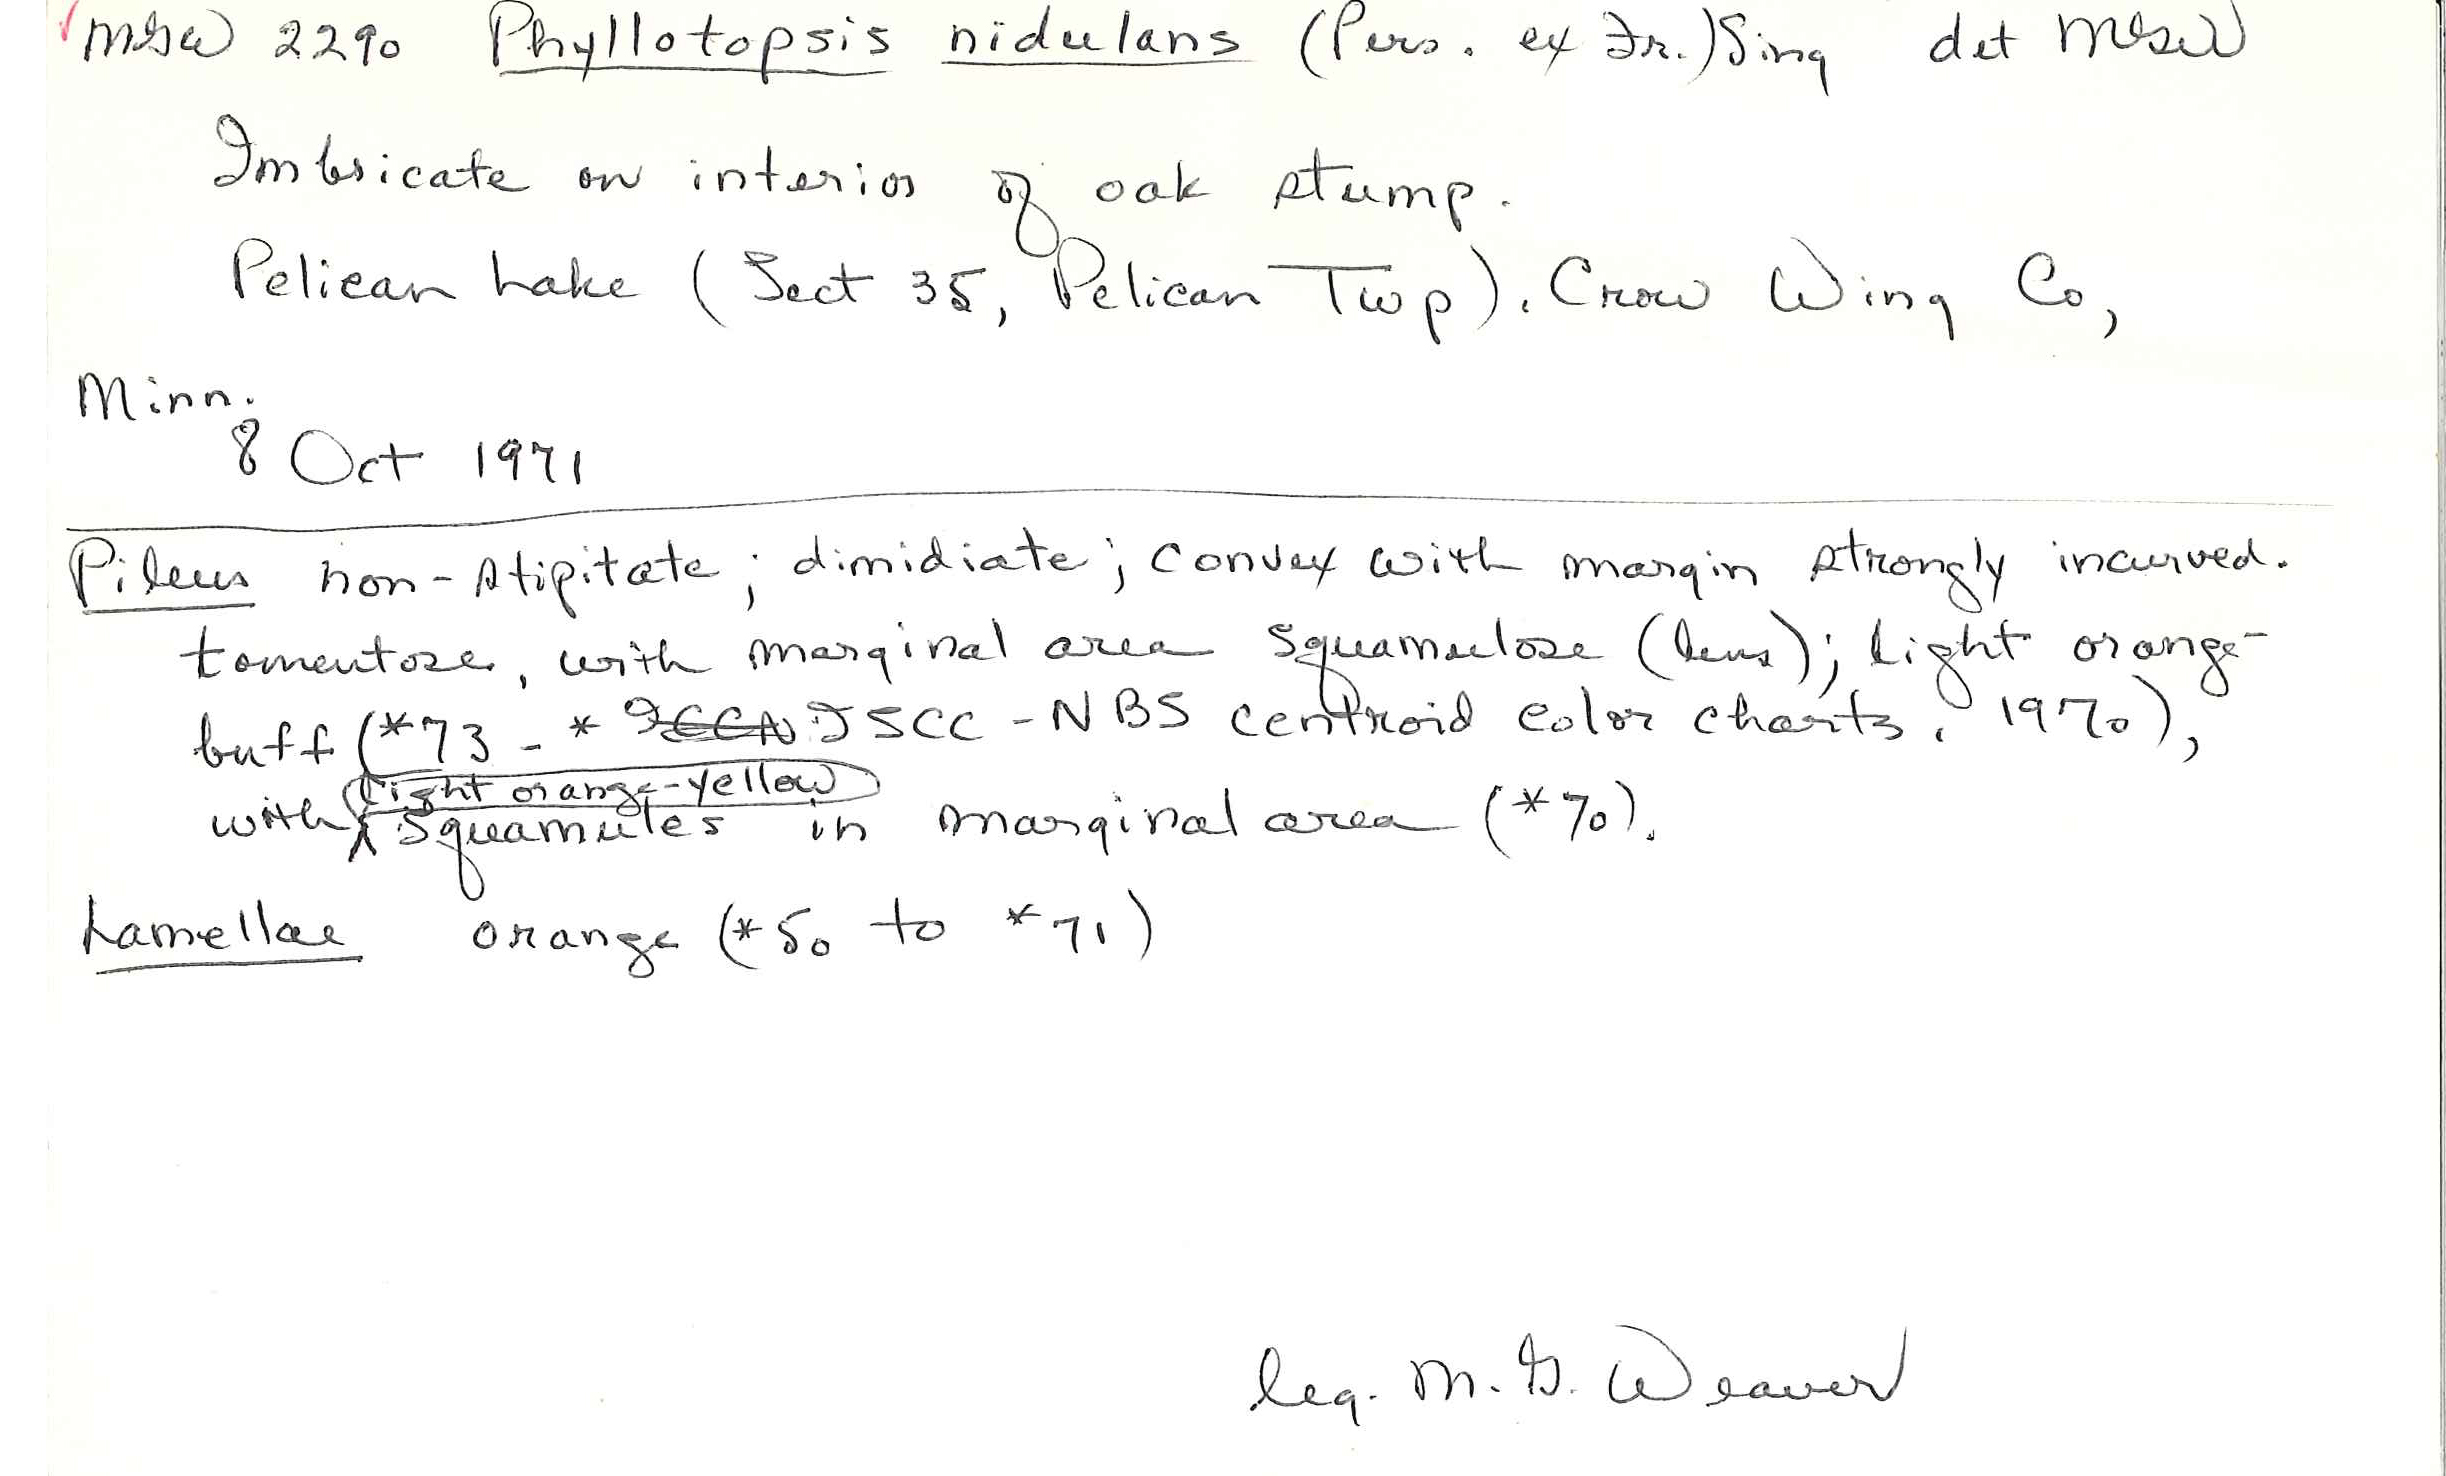 MGW 2290 Phyllotopsis nidulans (Pers. ex Fr.) Sing det MGW
Imbricate on interior of oak stump.
Pelican Lake (Sect 35, Pelican Twp), Crow Wing Co,
Minn.
8 Oct 1971
Pileus non-stipitate; dimidiate; convex with margin strongly incurved.
tomentose, with marginal area squamulose (lens); light orange-
buff (*73 - * ISCC-NBS centroid color charts, 1970),
light orange-yellow
with squamules in marginal area (*70).
Lamellae orange (*50 to *71)
leg. M. G. Weaver